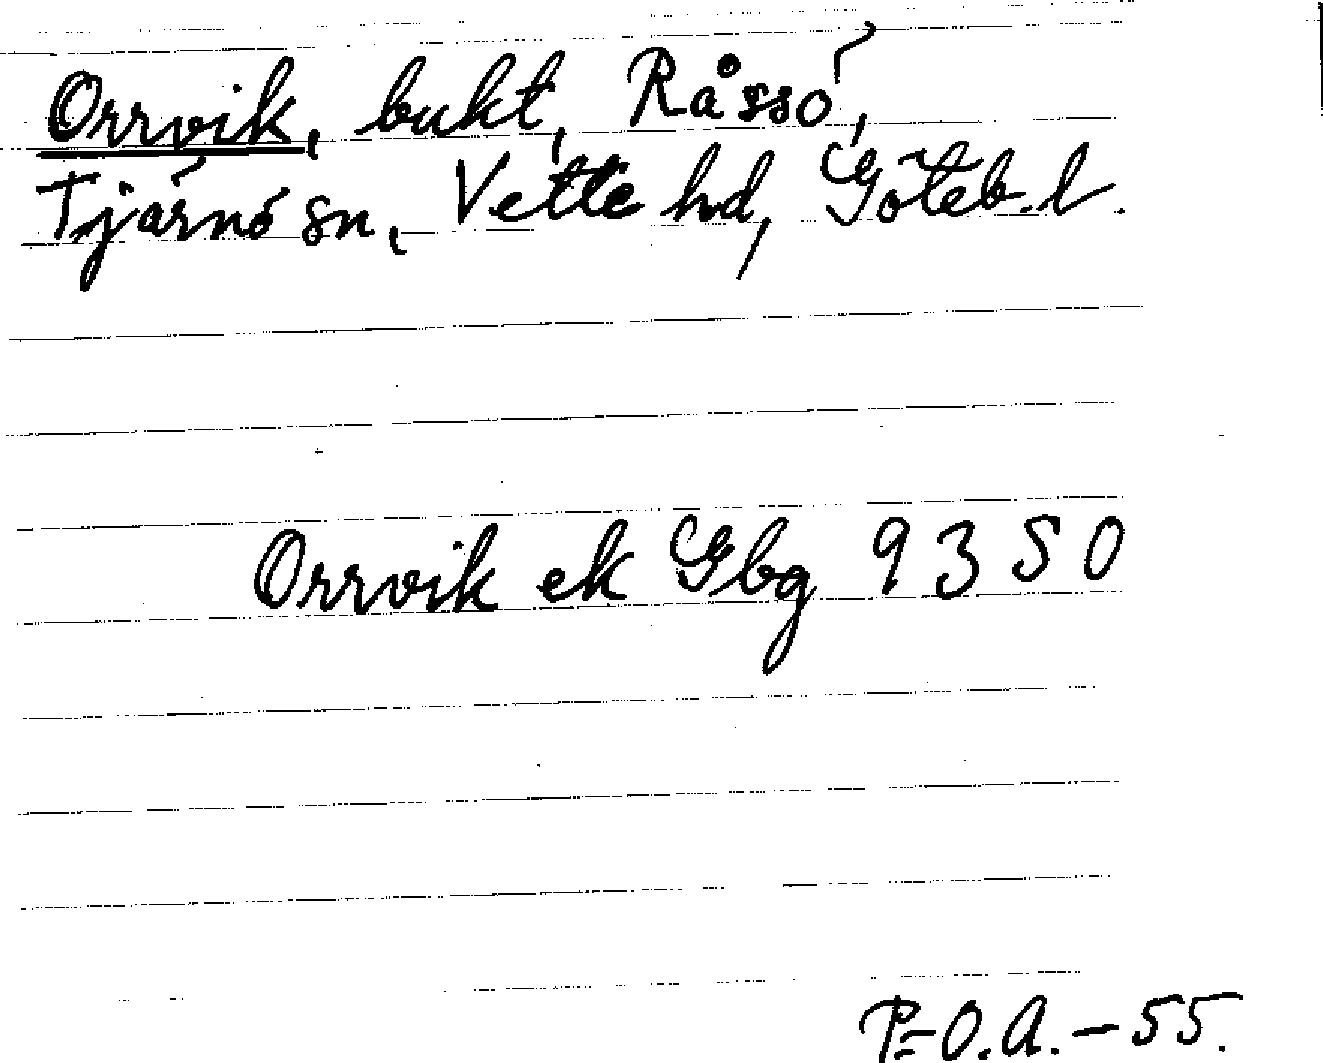 Orrvik, bukt, Råssö,
Tjärnö sn, Vette hd, Göteb. l.
Orrvik ek Gbg 9350
P-O.A. - 55.